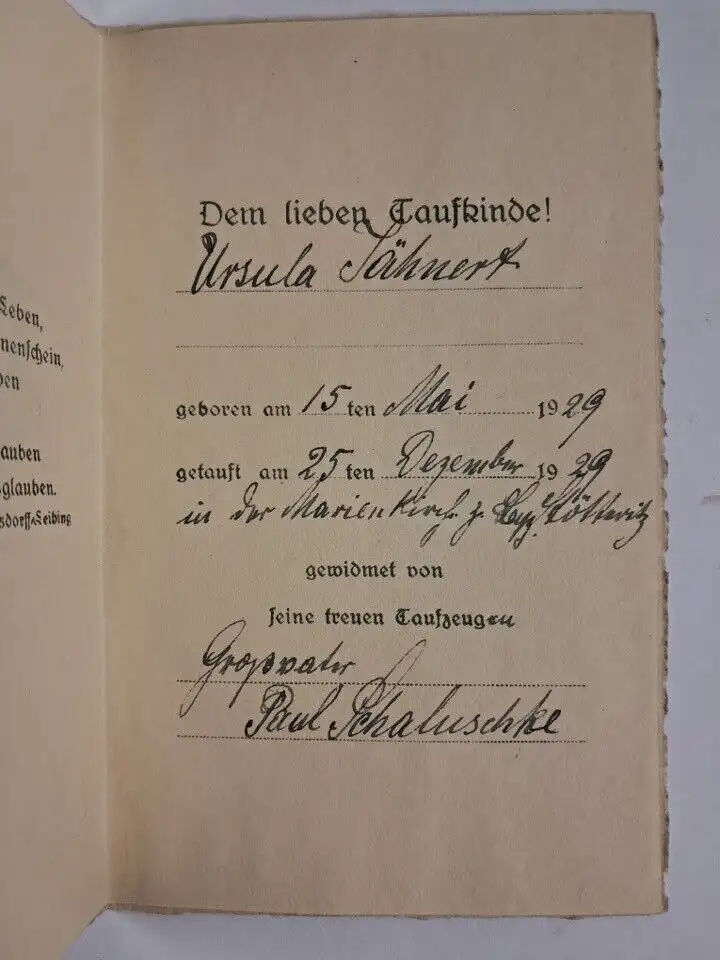 Leben,
nenschein,
den
auben
sglauben.
sdorff-Leibing
Dem lieben Taufkinde!
Ursula Jähnert
geboren am 15 ten Mai 1929
getauft am 25 ten Dezember 1929
in der Marienkirch. z. Stötteritz
gewidmet von
seine treuen Taufzeugen
Großvater
Paul Schaluschke